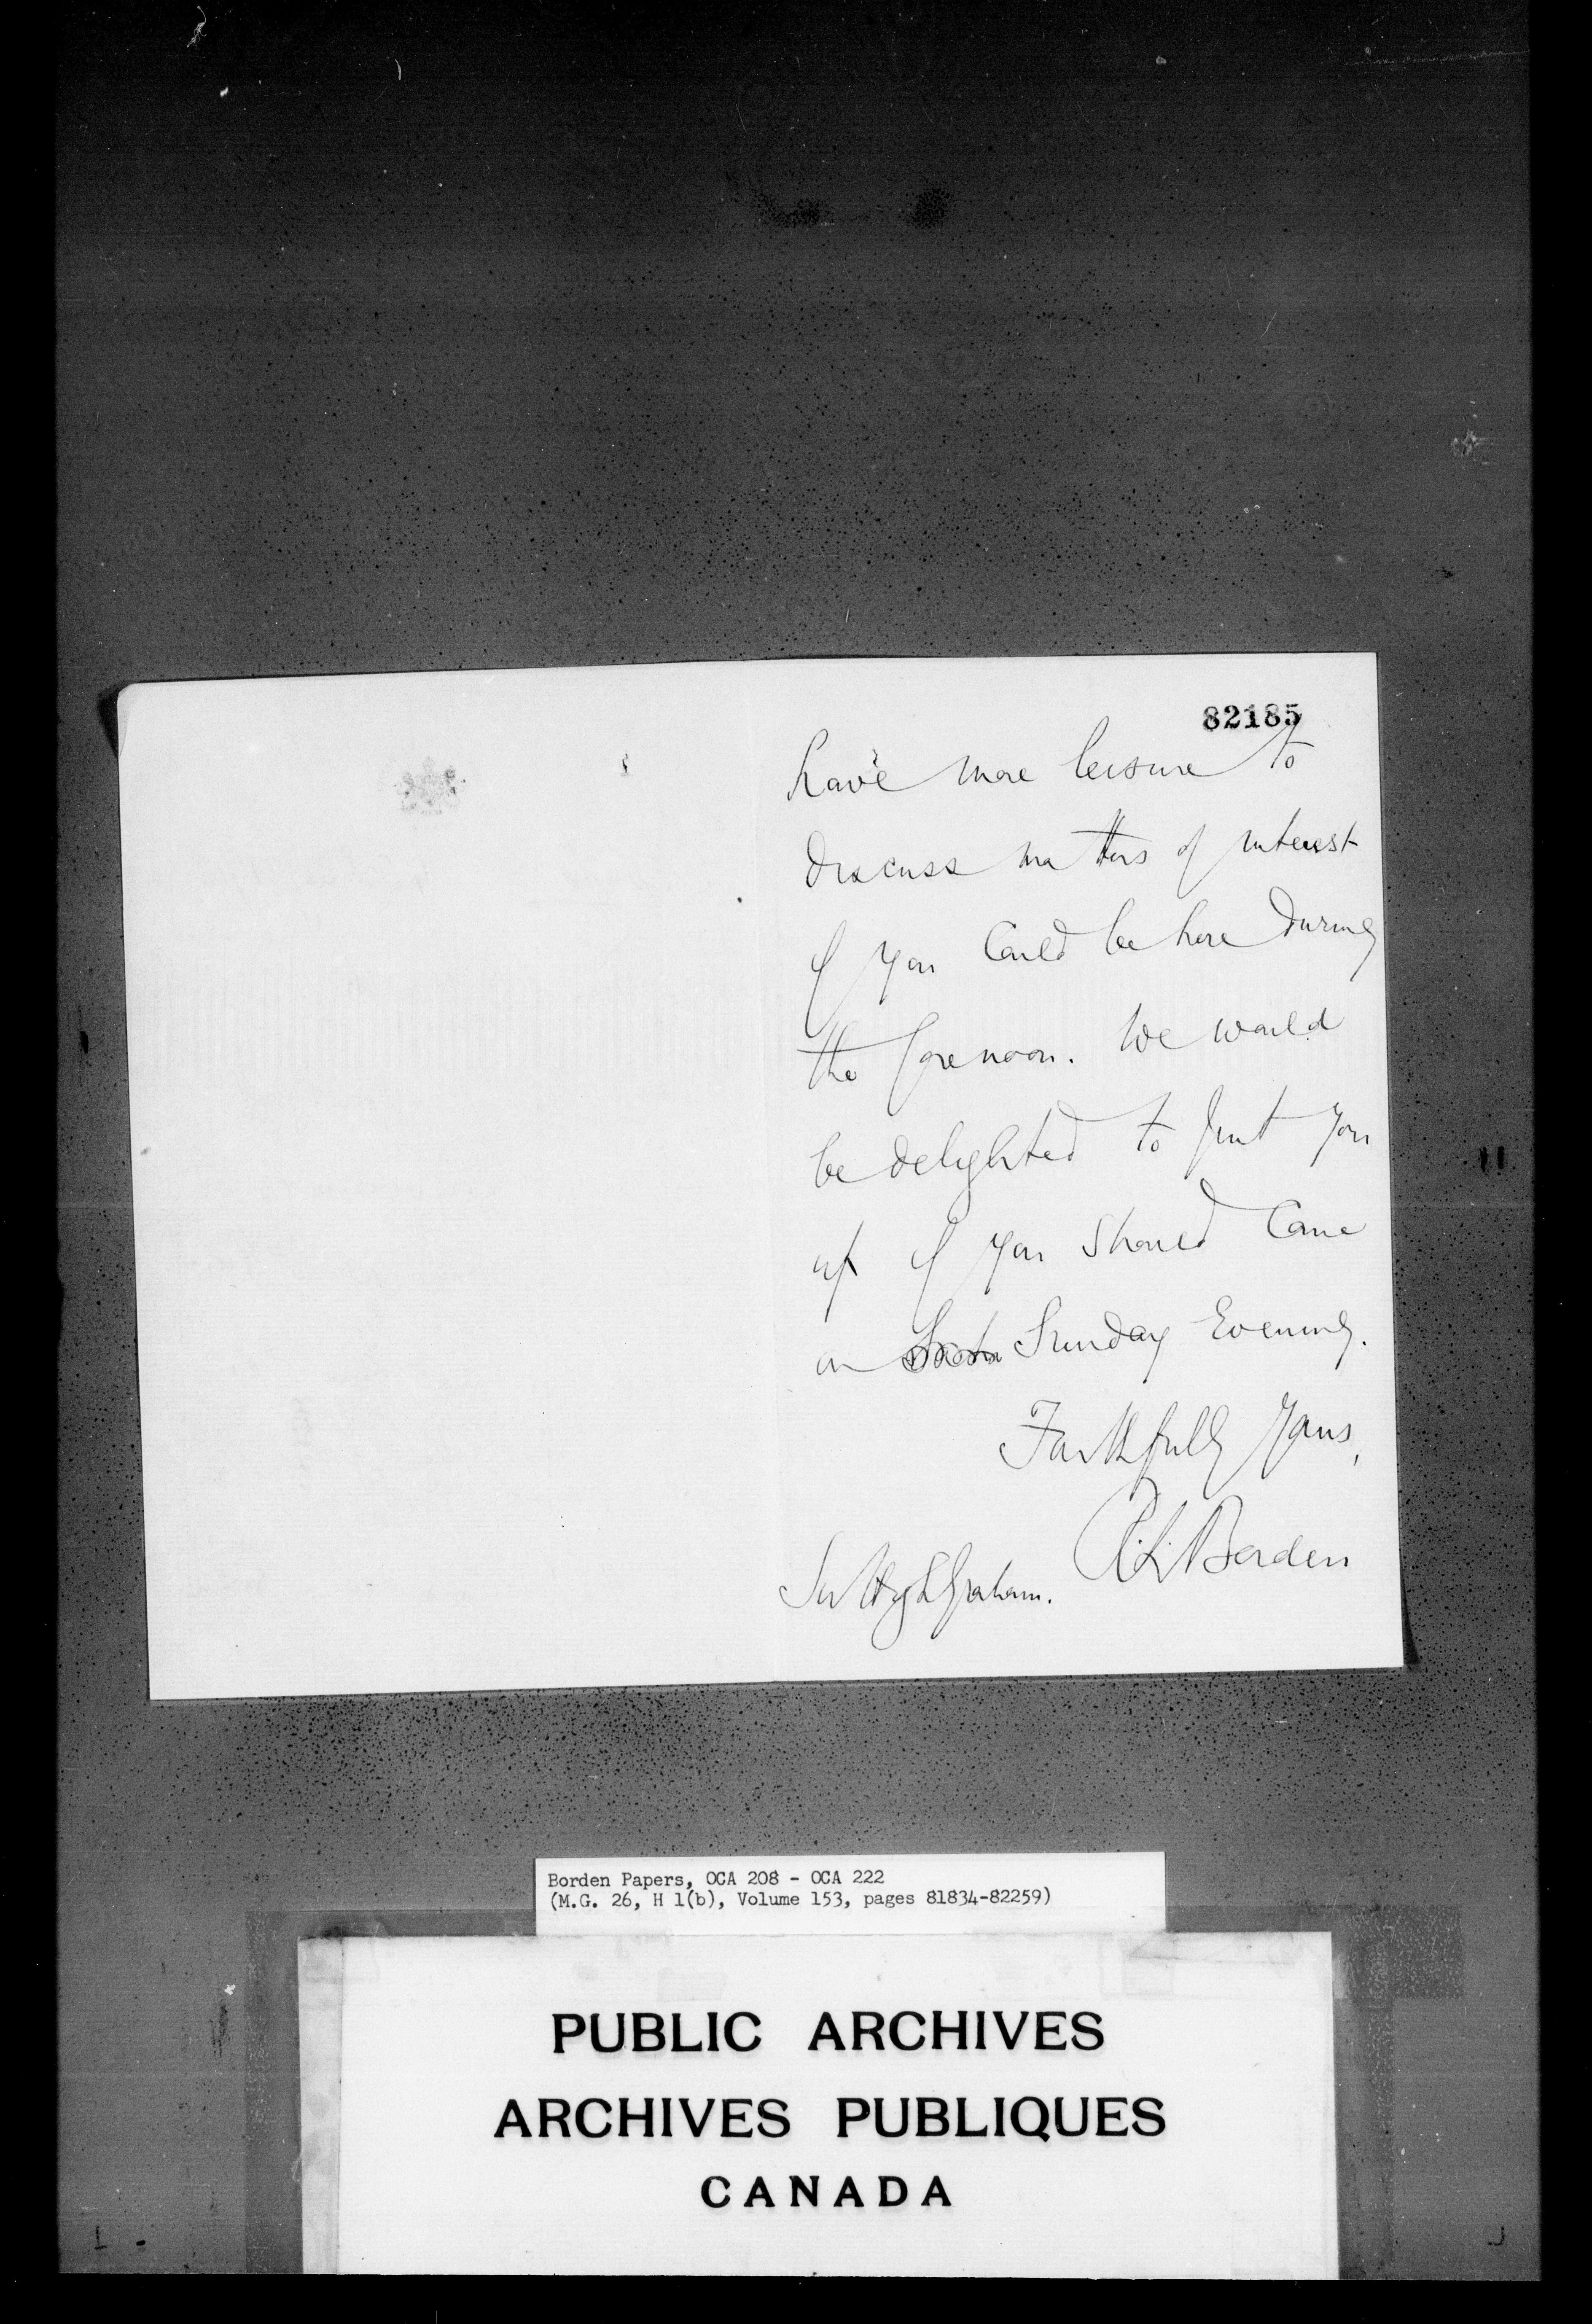 82185
have more leisure to
discuss matters of interest
if you could be here during
the forenoon. We would
be delighted to put you
up if you should come
on Sunday Evening.
Faithfully yours,
R.L. Borden
Sir Hugh Graham.
Borden Papers, OCA 208 - OCA 222
(M.G. 26, H 1(b), Volume 153, pages 81834-82259)
PUBLIC ARCHIVES
ARCHIVES PUBLIQUES
CANADA